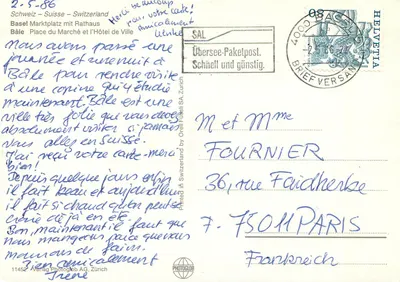 2.5.86
Schweiz - Suisse - Switzerland
Basel Marktplatz mit Rathaus
Bâle Place du Marché et l'Hôtel de Ville
Merci beaucoup
pour votre carte!
Amicalement
Nous avons passé une
journée et une nuit à
Bâle pour rendre visite
à une copine qui y étudie
maintenant. Bâle est une
ville très jolie que vous devez
absolument visiter si jamais
vous allez en Suisse.
J'ai reçu votre carte - merci
bien!
Depuis quelques jours enfin
il fait beau et aujourd'hui
il fait si chaud qu'on peut se
croire déjà en été.
Bon, maintenant il faut que
nous mangions parce que nous
mourons de faim.
Bien amicalement
Irene
11452 Verlag Photoglob AG, Zürich
PHOTOGLOB
SAL
Übersee-Paketpost.
Schnell und günstig.
4000 BASEL
2.5.86
BRIEFVERSAND
80
HELVETIA
M et Mme
FOURNIER
36, rue Faidherbe
F-75011 PARIS
Frankreich